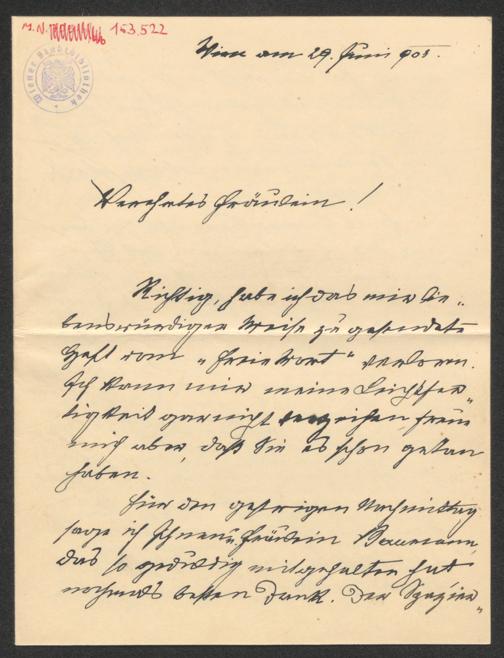 M.N. 163.522
Wiener Stadtbibliothek
Wien am 29. Juni 905.
Verehrtes Fräulein!
Richtig, habe ich das mir lie„
benswürdiger Weise zugesendete
Heft vom „freie Wort“ verloren.
Ich kann mir meine Leichtfer„
tigkeit gar nicht verzeihen, freue
mich aber, daß Sie es schon getan
haben.
Für den gestrigen Nachmittag
sage ich Ihnen u. Fräulein Baumann,
das so geduldig mitgehalten hat
nochmals besten Dank. Der Spazier„